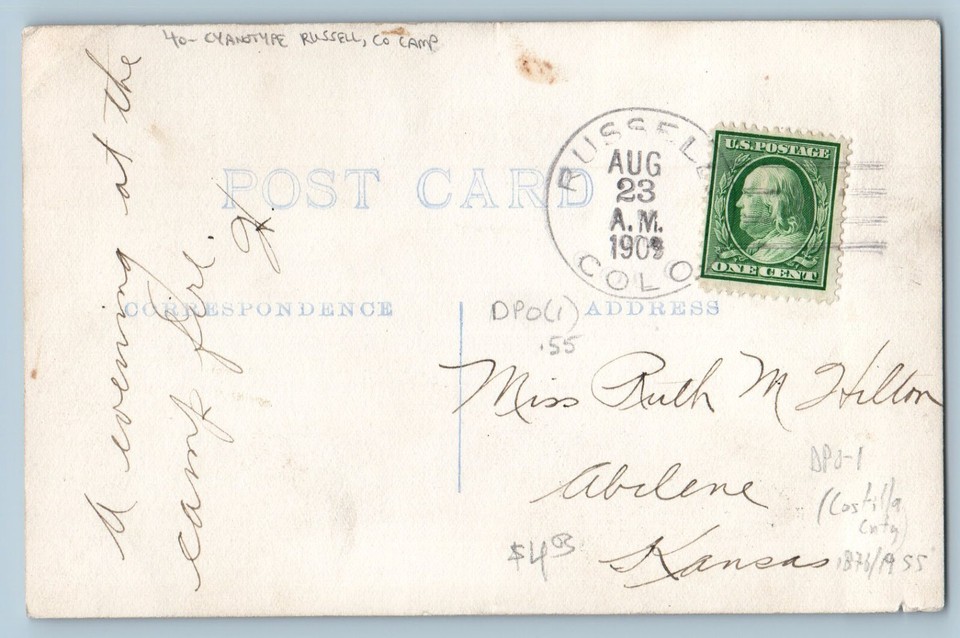 40- CYANOTYPE RUSSELL, CO CAMP
A evening at the
camp fire.
H.
POST CARD
RUSSELL
AUG
23
A.M.
1909
COLO
U.S. POSTAGE
ONE CENT
CORRESPONDENCE
ADDRESS
DPO(1)
.55
Miss Ruth M Hilton
Abilene
Kansas
DPO-1
(Costilla
Cnty)
1876/1955
$4